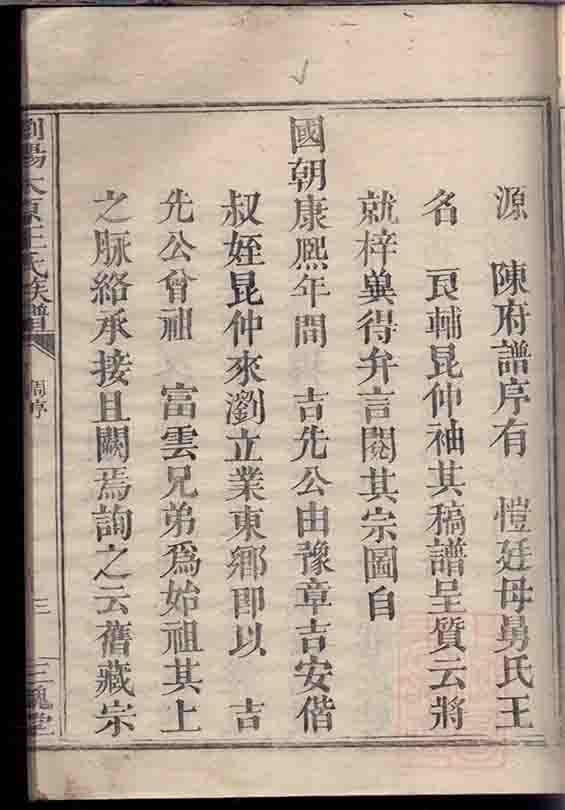 源　陳府譜序有　愷廷母舅氏王
名　良輔昆仲袖其稿譜呈質云將
就梓兾得弁言閱其宗圖自
國朝康熈年間　吉先公由豫章吉安偕
叔姪昆仲來瀏立業東鄉即以　吉
先公曾祖　富雲兄弟爲始祖其上
之脉絡承接且闕焉詢之云舊藏宗
瀏陽太原王氏族譜
周序
三
三槐堂